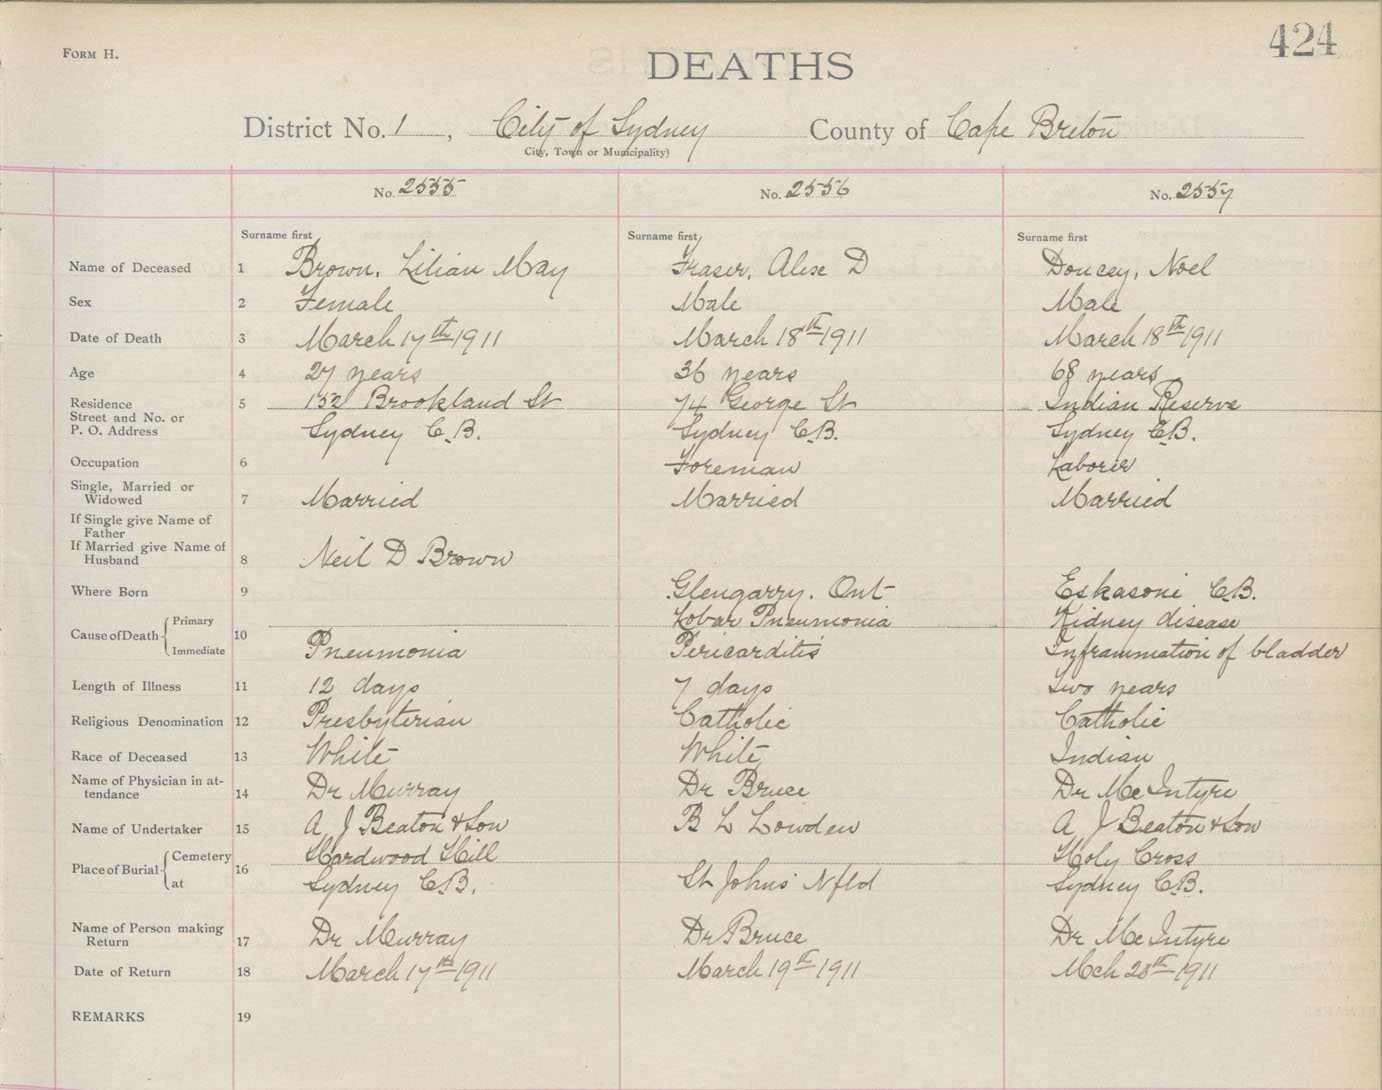 424
FORM H.
DEATHS
District No. 1, City of Sydney County of Cape Breton
City, Town or Municipality)
No. 2555 No. 2556 No. 2557
Surname first Surname first Surname first
Name of Deceased 1 Brown, Lilian May Fraser, Alex D Doucey, Noel
Sex 2 Female Male Male
Date of Death 3 March 17th 1911 March 18th 1911 March 18th 1911
Age 4 27 years 36 years 68 years
Residence 5 152 Brookland St 74 George St Indian Reserve
Street and No. or
P. O. Address Sydney C.B. Sydney C.B. Sydney C.B.
Occupation 6 Foreman Laborer
Single, Married or
Widowed 7 Married Married Married
If Single give Name of
Father
If Married give Name of
Husband 8 Neil D Brown
Where Born 9 Glengarry. Ont Eskasoni C.B.
Cause of Death Primary 10 Lobar Pneumonia Kidney disease
Immediate Pneumonia Pericarditis Inframmation of bladder
Length of Illness 11 12 days 7 days Two years
Religious Denomination 12 Presbyterian Catholic Catholic
Race of Deceased 13 White White Indian
Name of Physician in at-
tendance 14 Dr Murray Dr Bruce Dr McIntyre
Name of Undertaker 15 A J Beaton & Son B L Lowden A J Beaton & Son
Place of Burial Cemetery 16 Hardwood Hill Holy Cross
at Sydney C.B. St Johns Nfld Sydney C.B.
Name of Person making
Return 17 Dr Murray Dr Bruce Dr McIntyre
Date of Return 18 March 17th 1911 March 19th 1911 Mch 20th 1911
REMARKS 19